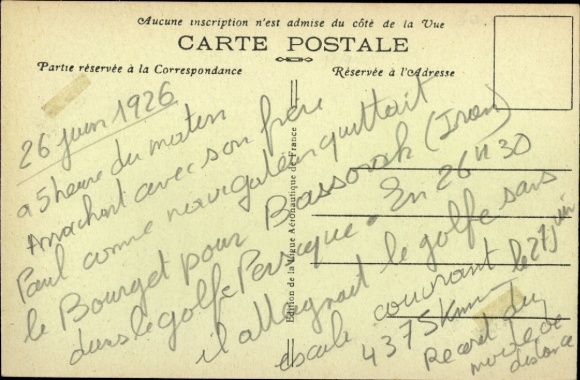 Aucune inscription n'est admise du côté de la Vue
CARTE POSTALE
Partie réservée à la Correspondance
Réservée à l'Adresse
Edition de la Ligue Aéronautique de France
26 juin 1926
a 5 heure du matin
Arrachart avec son frère
Paul comme navigateur quittait
le Bourget pour Bassorah (Iran)
dans le golfe Persique. En 26 H 30
il attegnait le golfe sans
escale couvrant
4375 Kmm le 27 juin
Record du
monde de
distance